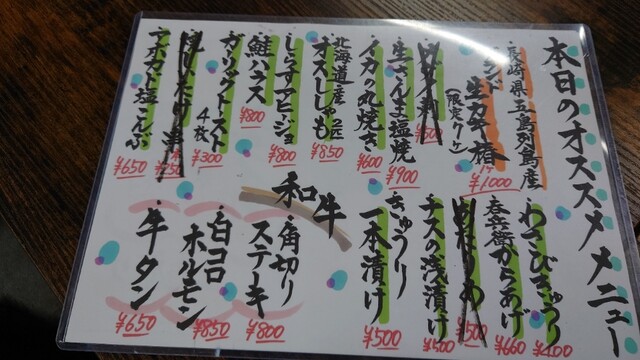 本日のオススメメニュー
長崎県五島列島産
ブランド生カキ椿
(限定6ケ)
1ケ
¥1,000
¥500
・生さんま塩焼
¥900
・イカの丸焼き
¥600
北海道産
・オスししゃも 2匹
¥850
・しらすアヒージョ
¥800
・鮭ハラス
¥800
・ガーリックトースト
4枚
¥300
・焼しいたけ串
¥250
・アボカド塩こんぶ
¥650
・わさびきゅうり
¥400
・呑兵衛からあげ
¥660
¥500
・ナスの浅漬け
¥500
・きゅうり
一本漬け
¥500
和牛
・角切り
ステーキ
¥800
・白コロ
ホルモン
¥850
・牛タン
¥650